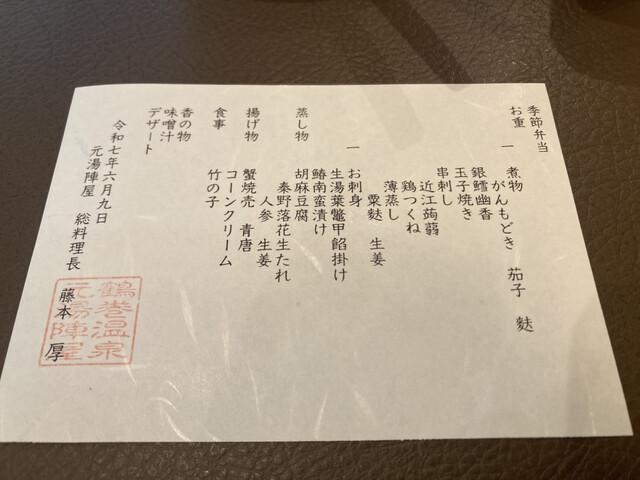 季節弁当
お重
一 煮物
がんもどき 茄子 麩
銀鱈幽香
玉子焼き
串刺し
近江蒟蒻
鶏つくね
薄蒸し
粟麩 生姜
一 お刺身
生湯葉鼈甲餡掛け
鰆南蛮漬け
蒸し物 胡麻豆腐
秦野落花生たれ
人参 生姜
揚げ物 蟹焼売 青唐
コーンクリーム
食事 竹の子
香の物
味噌汁
デザート
令和七年六月九日
元湯陣屋 総料理長
藤本 厚
鶴巻温泉
元湯陣屋